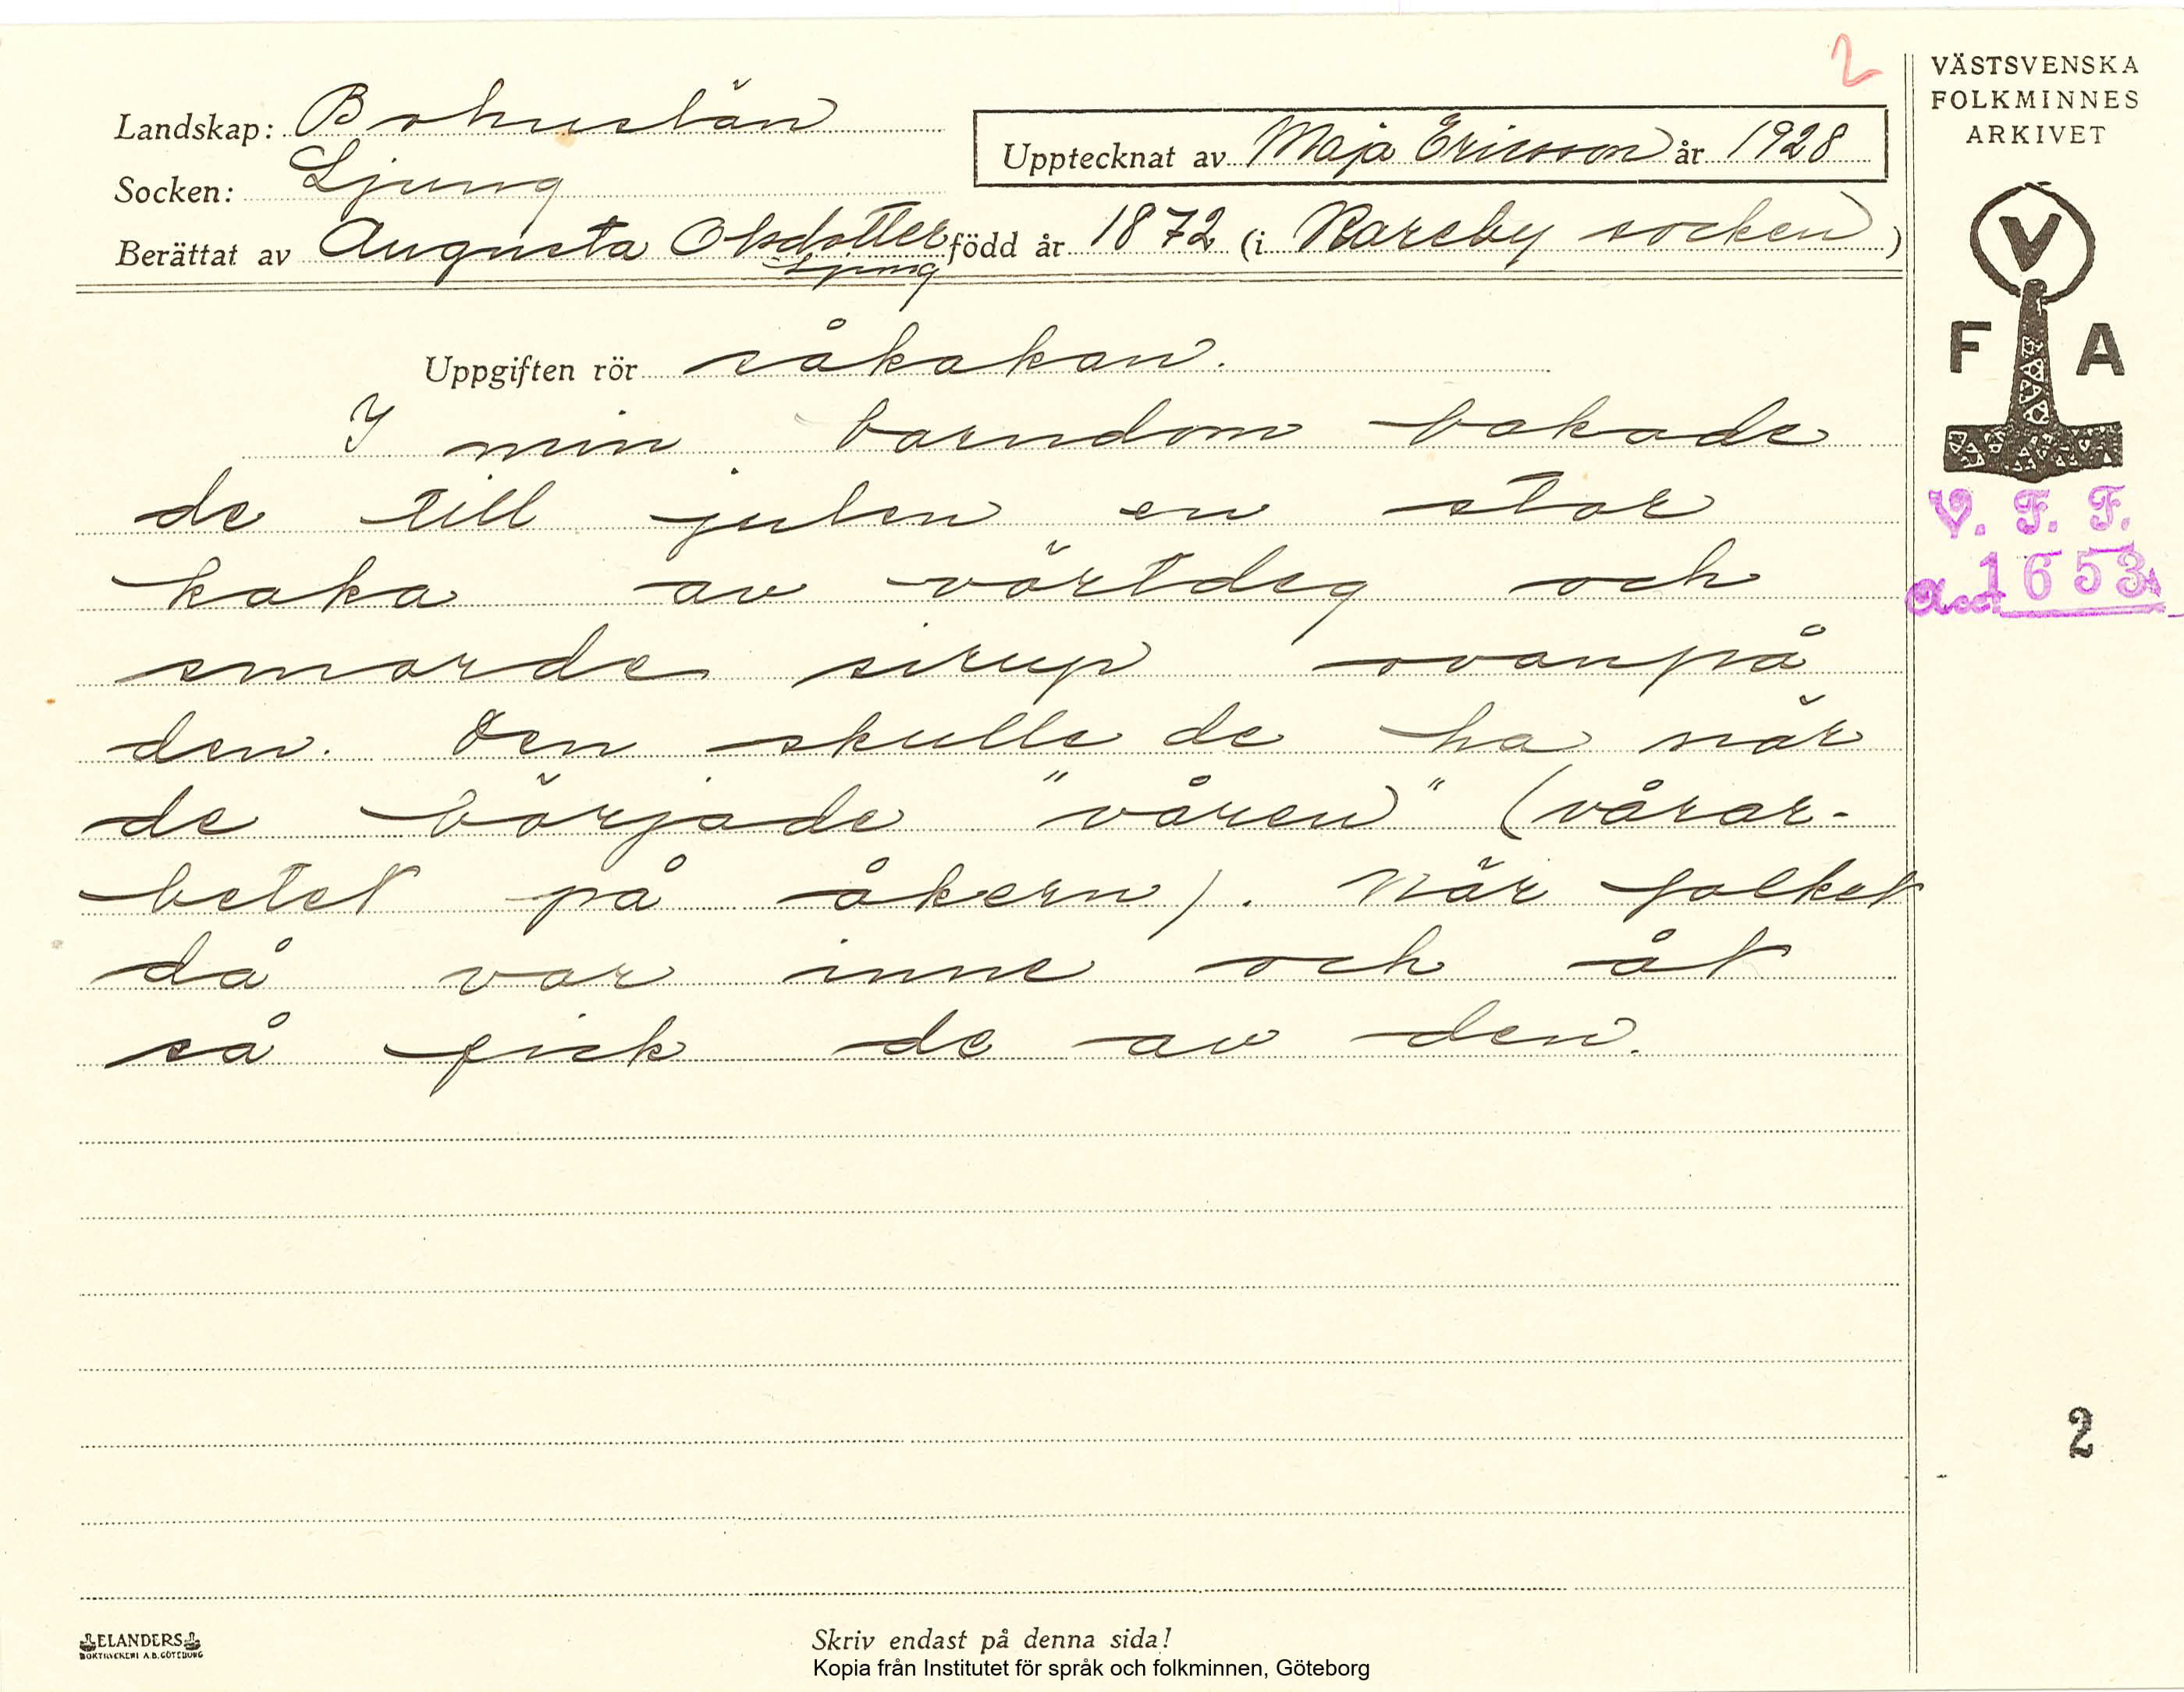 2
VÄSTSVENSKA
FOLKMINNES
ARKIVET
Landskap: Bohuslän
Upptecknat av Maja Ericsson år 1928
Socken: Ljung
Berättat av Augusta Olsdotter född år 1872 (i Kareby socken)
Ljung
V
F A
V. F. F.
Acc. 1653
Uppgiften rör såkakan.
I min barndom bakade
de till julen en stor
kaka av vörtdeg och
smorde sirup ovanpå
den. Den skulle de ha när
de började "våren" (vårar-
betet på åkern). När folket
då var inne och åt
så fick de av den.
2
ELANDERS
BOKTRYCKERI A.B. GÖTEBORG
Skriv endast på denna sida!
Kopia från Institutet för språk och folkminnen, Göteborg